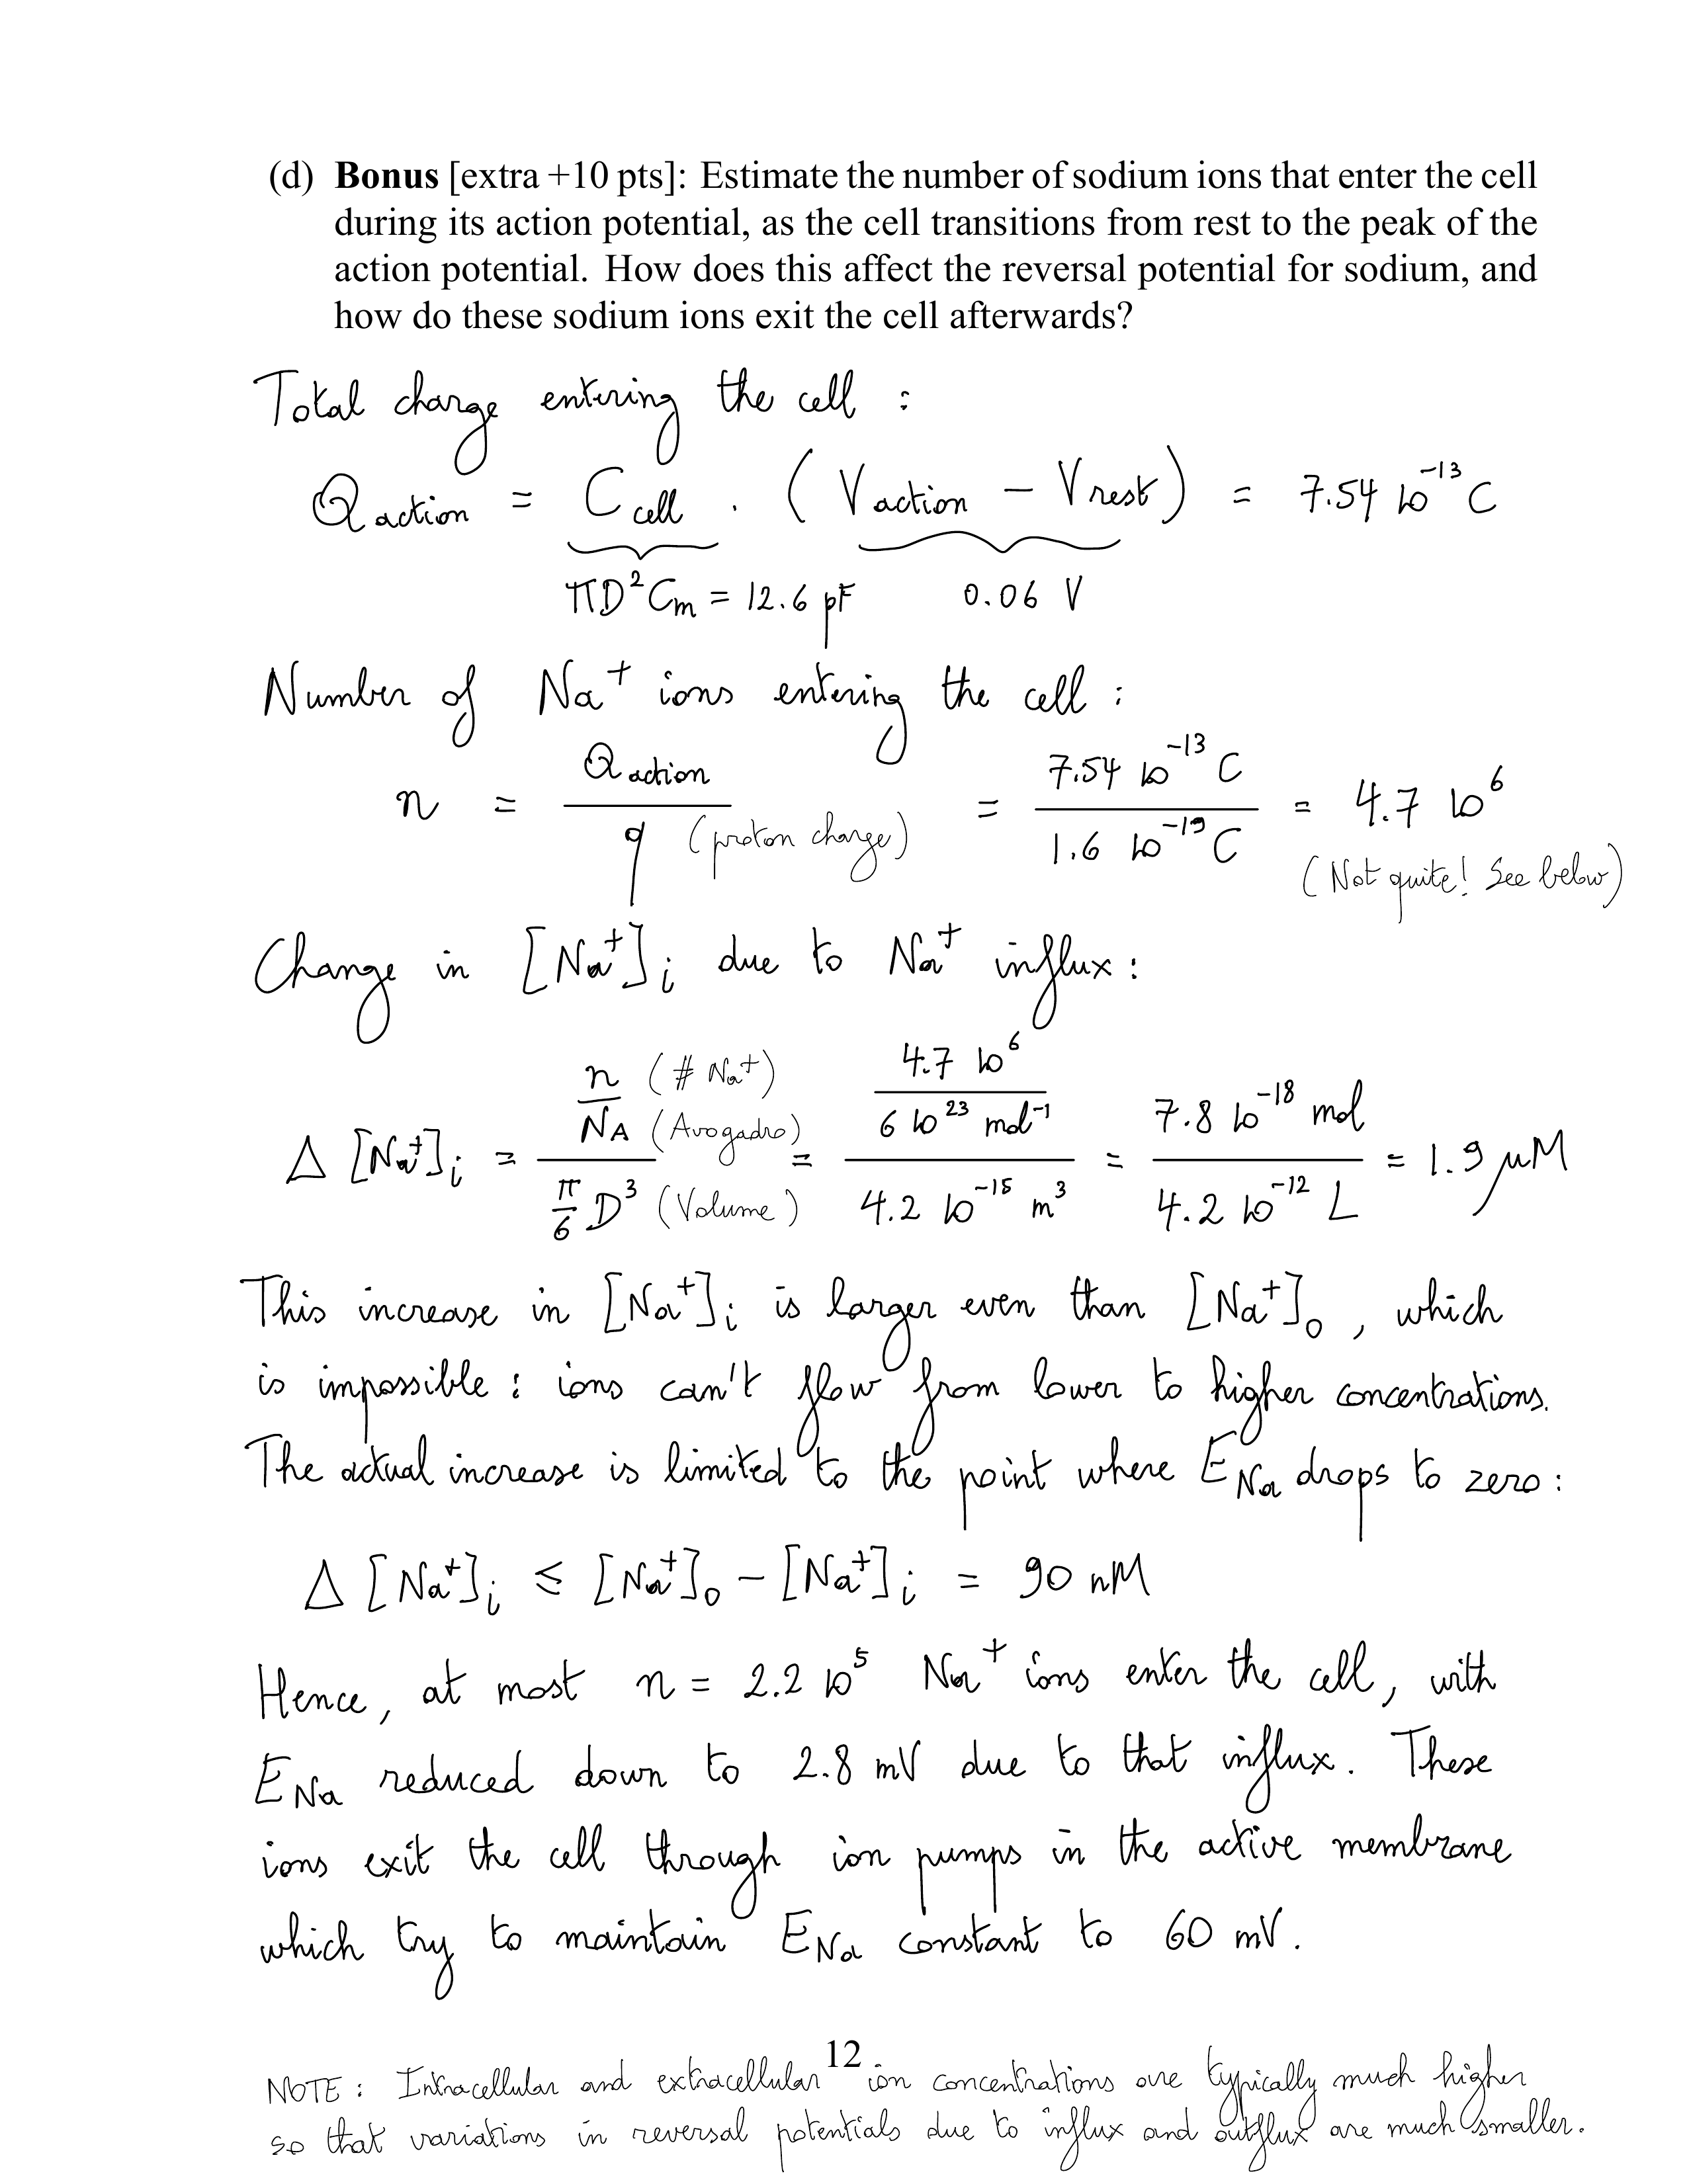 (d) Bonus [extra +10 pts]: Estimate the number of sodium ions that enter the cell
during its action potential, as the cell transitions from rest to the peak of the
action potential. How does this affect the reversal potential for sodium, and
how do these sodium ions exit the cell afterwards?
Total charge entering the cell :
Q action = C cell . ( V action − V rest ) = 7.54 10⁻¹³ C
πD² Cm = 12.6 pF 0.06 V
Number of Na⁺ ions entering the cell :
n = Q action / q (proton charge) = 7.54 10⁻¹³ C / 1.6 10⁻¹⁹ C = 4.7 10⁶
(Not quite! See below)
Change in [Na⁺]i due to Na⁺ influx :
Δ [Na⁺]i = n (# Na⁺) / NA (Avogadro) / π/6 D³ (Volume) = 4.7 10⁶ / 6 10²³ mol⁻¹ / 4.2 10⁻¹⁵ m³ = 7.8 10⁻¹⁸ mol / 4.2 10⁻¹² L = 1.9 μM
This increase in [Na⁺]i is larger even than [Na⁺]o , which
is impossible : ions can't flow from lower to higher concentrations.
The actual increase is limited to the point where ENa drops to zero :
Δ [Na⁺]i ≤ [Na⁺]o − [Na⁺]i = 90 nM
Hence, at most n = 2.2 10⁵ Na⁺ ions enter the cell, with
ENa reduced down to 2.8 mV due to that influx. These
ions exit the cell through ion pumps in the active membrane
which try to maintain ENa constant to 60 mV.
12
NOTE : Intracellular and extracellular ion concentrations are typically much higher
so that variations in reversal potentials due to influx and outflux are much smaller.